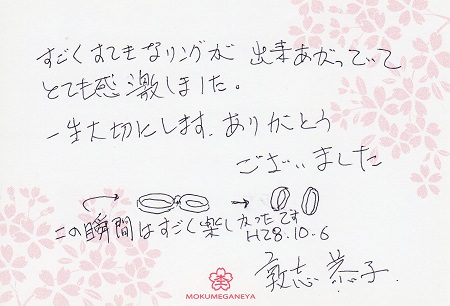 すごくすてきなリングが 出来あがっていて
とても感激しました。
一生大切にします。ありがとう
ございました
この瞬間はすごく楽しかったです
H28.10.6
敦志 恭子
MOKUMEGANEYA